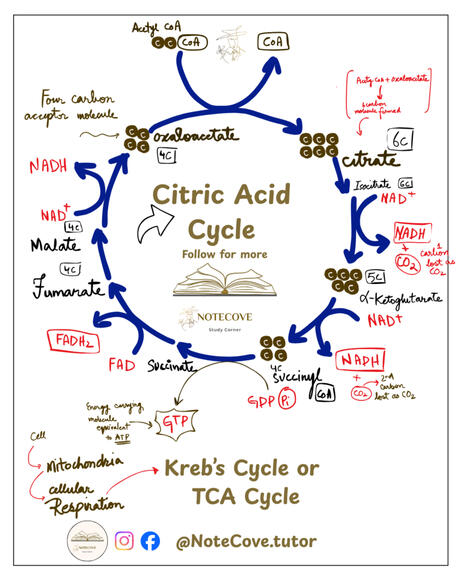 Acetyl CoA
C C CoA
CoA
[Acety CoA + oxaloacetate]
6 carbon
molecule formed
Four carbon
acceptor molecule
C C
C C
oxaloacetate
4C
C C C
C C C
6C
citrate
Isocitrate 6C
NAD+
NADH
+
CO2
1
carbon
lost as
CO2
NADH
NAD+
4C
Malate
4C
Fumarate
Citric Acid
Cycle
Follow for more
NOTECOVE
Study Corner
C C C
C C
5C
α-Ketoglutarate
NAD+
NADH
+
CO2
2nd
carbon
lost as CO2
FADH2
FAD
Succinate
C C
C C
4C
Succinyl
CoA
GDP Pi
GTP
Energy carrying
molecule
equivalent
to ATP
Cell
Mitochondria
cellular
Respiration
Kreb's Cycle or
TCA Cycle
NOTECOVE
@NoteCove.tutor